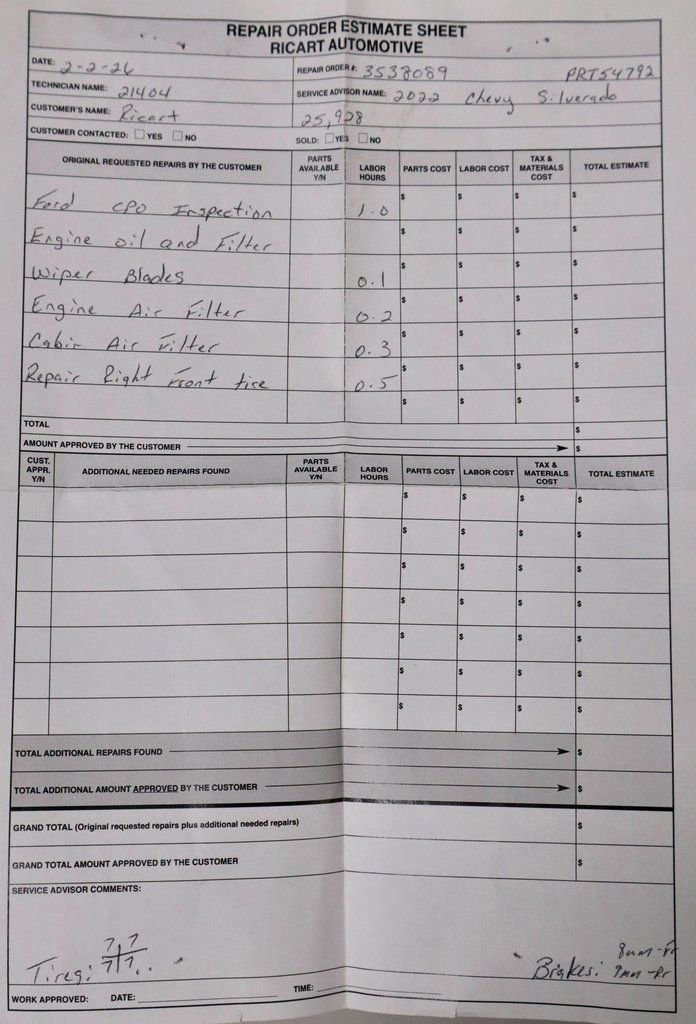 REPAIR ORDER ESTIMATE SHEET
RICART AUTOMOTIVE
DATE: 2-2-26 REPAIR ORDER #: 3538089 PRT54792
TECHNICIAN NAME: 21404 SERVICE ADVISOR NAME: 2022 Chevy Silverado
CUSTOMER'S NAME: Ricart 25,928
CUSTOMER CONTACTED: ☐ YES ☐ NO SOLD: ☐ YES ☐ NO
ORIGINAL REQUESTED REPAIRS BY THE CUSTOMER PARTS AVAILABLE Y/N LABOR HOURS PARTS COST LABOR COST TAX & MATERIALS COST TOTAL ESTIMATE
Ford CPO Inspection 1.0 $ $ $ $
Engine oil and Filter $ $ $ $
Wiper Blades 0.1 $ $ $ $
Engine Air Filter 0.2 $ $ $ $
Cabin Air Filter 0.3 $ $ $ $
Repair Right Front tire 0.5 $ $ $ $
$ $ $ $
TOTAL $
AMOUNT APPROVED BY THE CUSTOMER $
CUST. APPR. Y/N ADDITIONAL NEEDED REPAIRS FOUND PARTS AVAILABLE Y/N LABOR HOURS PARTS COST LABOR COST TAX & MATERIALS COST TOTAL ESTIMATE
$ $ $ $
$ $ $ $
$ $ $ $
$ $ $ $
$ $ $ $
$ $ $ $
$ $ $ $
TOTAL ADDITIONAL REPAIRS FOUND $
TOTAL ADDITIONAL AMOUNT APPROVED BY THE CUSTOMER $
GRAND TOTAL (Original requested repairs plus additional needed repairs) $
GRAND TOTAL AMOUNT APPROVED BY THE CUSTOMER $
SERVICE ADVISOR COMMENTS:
7 7 8mm-Fr
Tires: 7 7 Brakes: 9mm-Rr
WORK APPROVED: DATE: TIME: